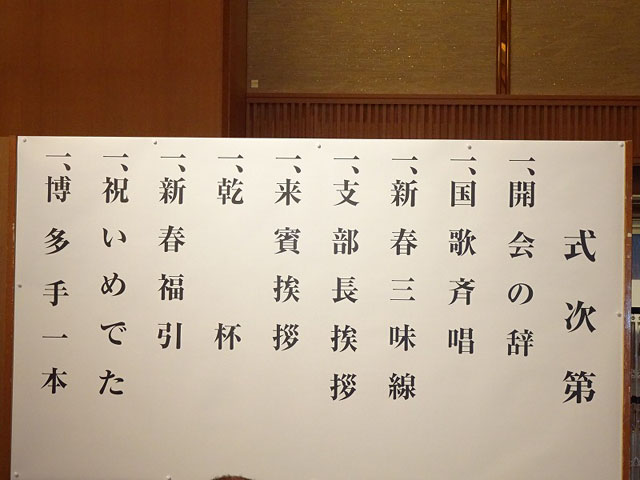 式次第
一、開会の辞
一、国歌斉唱
一、新春三味線
一、支部長挨拶
一、来賓挨拶
一、乾杯
一、新春福引
一、祝いめでた
一、博多手一本